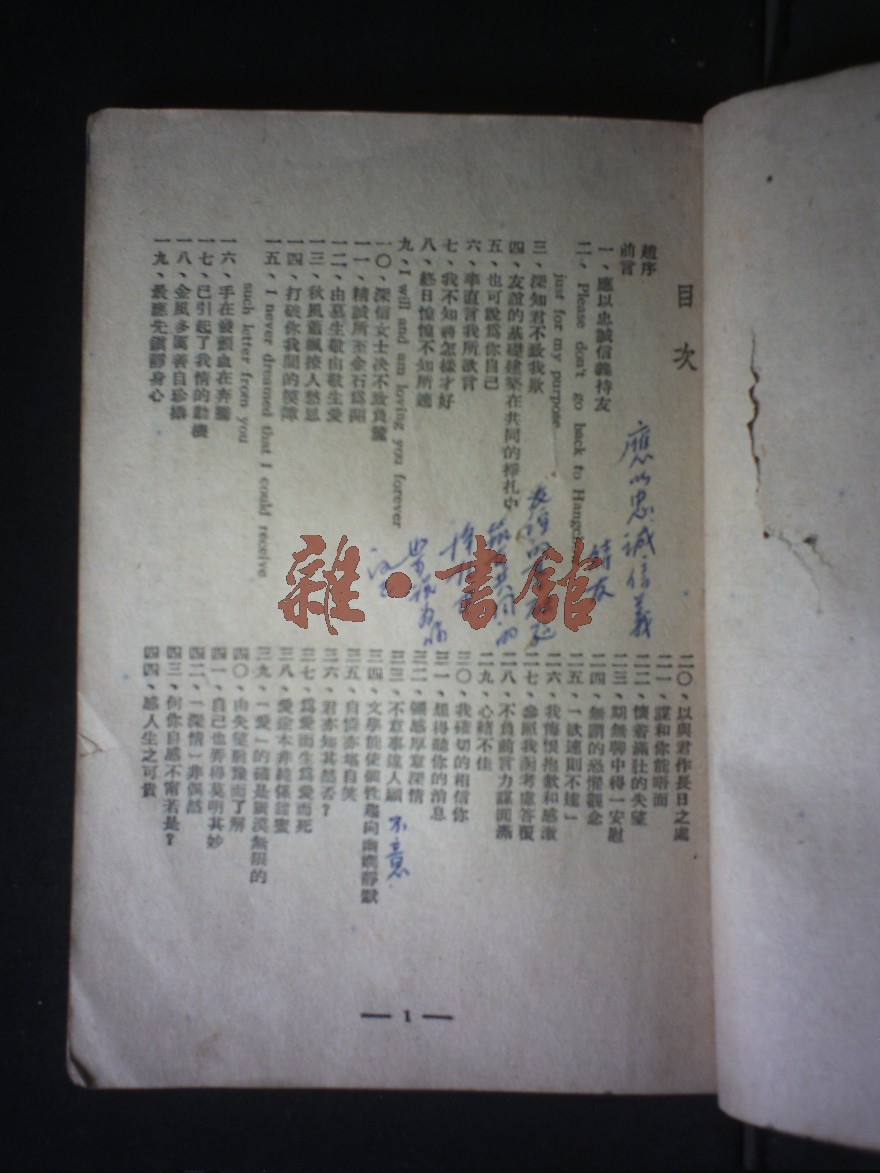 目次
趙序
前言
一、應以忠誠信義待友
二、Please don't go back to Hangch
just for my purpose
三、深知君不致我欺
四、友誼的基礎建築在共同的掙扎中
五、也可說爲你自己
六、率直言我所欲言
七、我不知將怎樣才好
八、終日惶惶不知所適
九、I will and am loving you forever
一〇、深信女士決不致負驚
一一、精誠所至金石爲開
一二、由慕生敬由敬生愛
一三、秋風蕭颯撩人愁思
一四、打破你我間的
一五、I never dreamed that I could receive
such letter from you
一六、手在發顫血在奔騰
一七、已引起了我情的動機
一八、金風多厲善自珍攝
一九、最應先鎮靜身心
二〇、以與君作長日之處
二一、謀和你能晤面
二二、懷着滿肚的失望
二三、期無聊中得一安慰
二四、無謂的恐懼觀念
二五、「欲速則不達」
二六、我悔恨抱歉和感激
二七、參照我函考慮答覆
二八、不負前言力謀
二九、心緒不佳
三〇、我確切的相信你
三一、想得聽你的消息
三二、彌感厚意深情
三三、不意事違人願
三四、文學能使個性趨向幽嫻靜默
三五、自憐亦堪自笑
三六、君亦知其然否？
三七、爲愛而生爲愛而死
三八、愛途本非純係甜蜜
三九、「愛」的確是廣漠無限的
四〇、由失望猶豫而了解
四一、自己也弄得莫明其妙
四二、「深情」非偶然
四三、何你自感不甯若是？
四四、感人生之可貴
應以忠誠信義
待友
友誼的基礎建
築在共同的
不意
雜·書館
— 1 —